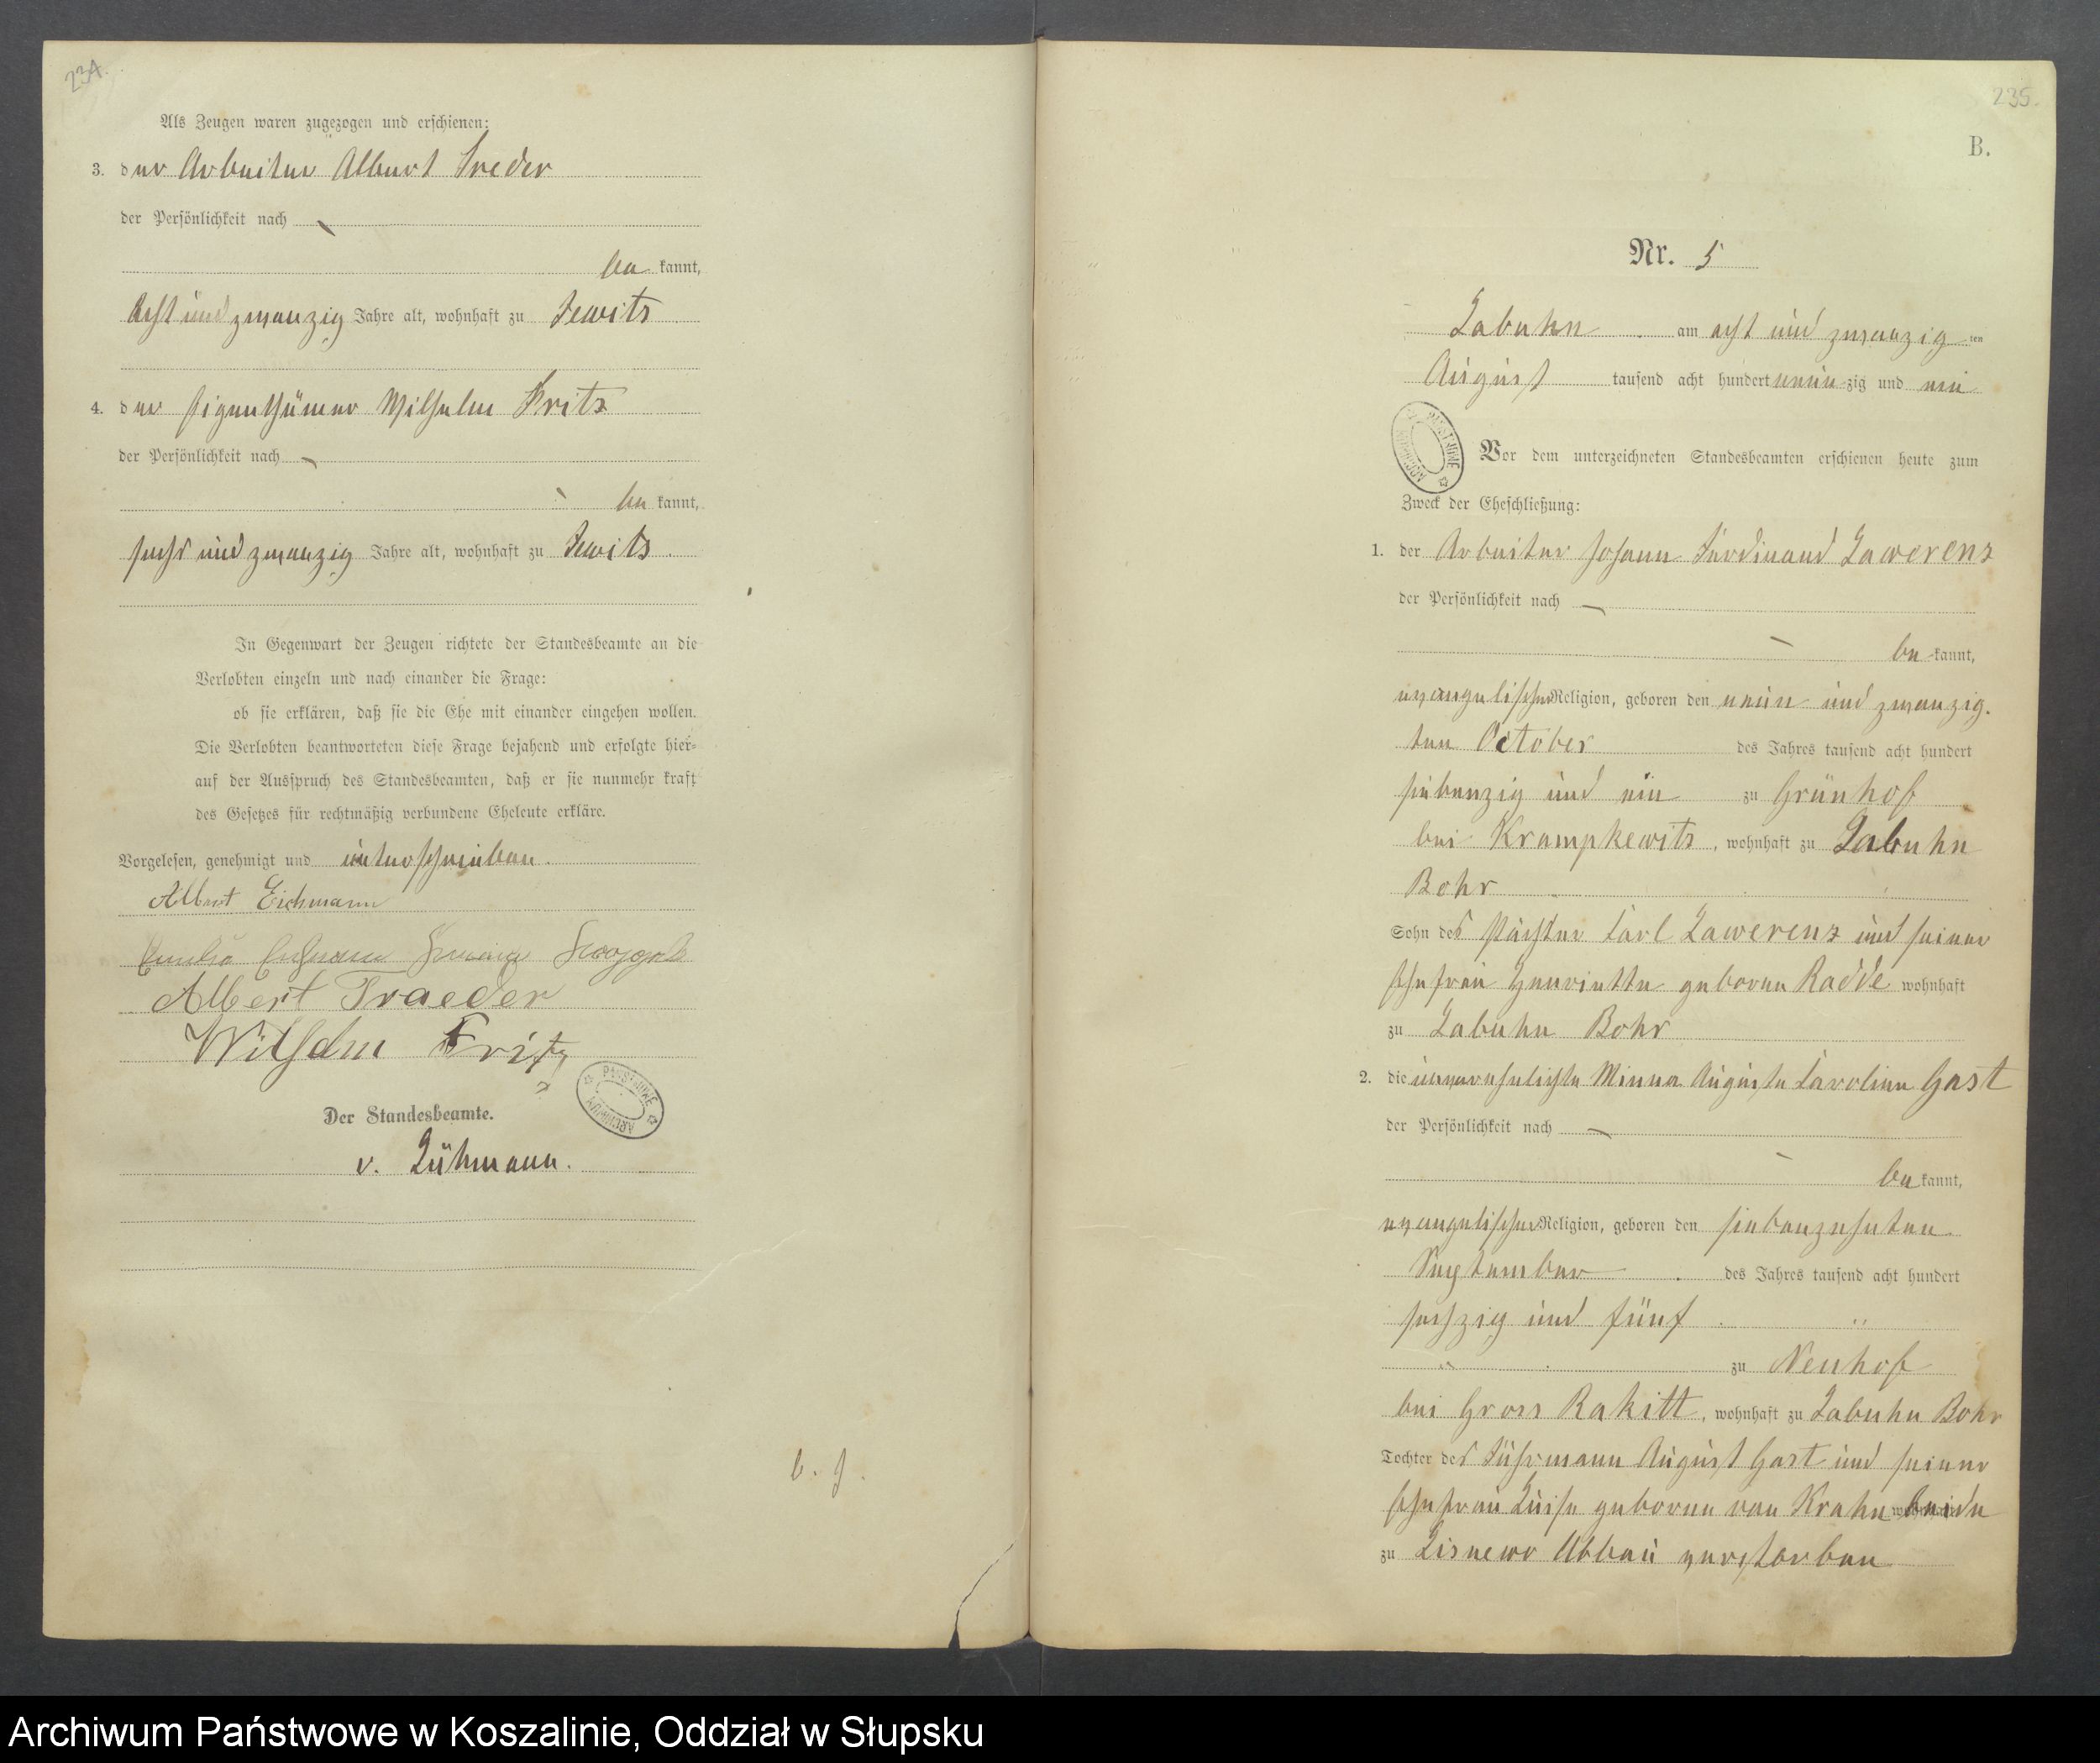 234.
Als Zeugen waren zugezogen und erschienen:
3. der Arbeiter Albert Treder
der Persönlichkeit nach
be kannt,
acht und zwanzig Jahre alt, wohnhaft zu Jewitz
4. der Eigenthümer Wilhelm Fritz
der Persönlichkeit nach
be kannt,
sechs und zwanzig Jahre alt, wohnhaft zu Jewitz.
In Gegenwart der Zeugen richtete der Standesbeamte an die
Verlobten einzeln und nach einander die Frage:
ob sie erklären, daß sie die Ehe mit einander eingehen wollen.
Die Verlobten beantworteten diese Frage bejahend und erfolgte hier-
auf der Ausspruch des Standesbeamten, daß er sie nunmehr kraft
des Gesetzes für rechtmäßig verbundene Eheleute erkläre.
Vorgelesen, genehmigt und unterschrieben.
Albert Eichmann
Albert Traeder
Wilhelm Fritz
Der Standesbeamte.
v. Lühmann.
235.
B.
Nr. 5
Labuhn am acht und zwanzig ten
August tausend acht hundert neun zig und ein
Vor dem unterzeichneten Standesbeamten erschienen heute zum
Zweck der Eheschließung:
1. der Arbeiter Johann Ferdinand Lawerenz
der Persönlichkeit nach
be kannt,
evangelischer Religion, geboren den neun und zwanzig.
ten October des Jahres tausend acht hundert
siebenzig und ein zu Grünhof
bei Krampkewitz, wohnhaft zu Labuhn
Bohr
Sohn des Pächter Carl Lawerenz und seiner
Ehefrau Henriette geborene Radde wohnhaft
zu Labuhn Bohr
2. die unverehelichte Minna Auguste Caroline Gast
der Persönlichkeit nach
be kannt,
evangelischer Religion, geboren den siebenzehnten
September des Jahres tausend acht hundert
sechzig und fünf
zu Neuhof
bei Gross Rakitt, wohnhaft zu Labuhn Bohr
Tochter des Fuhrmann August Gast und seiner
Ehefrau Luise geborene von Krahn wohnhaft beide
zu Lisnewo Abbau verstorben
Archiwum Państwowe w Koszalinie, Oddział w Słupsku